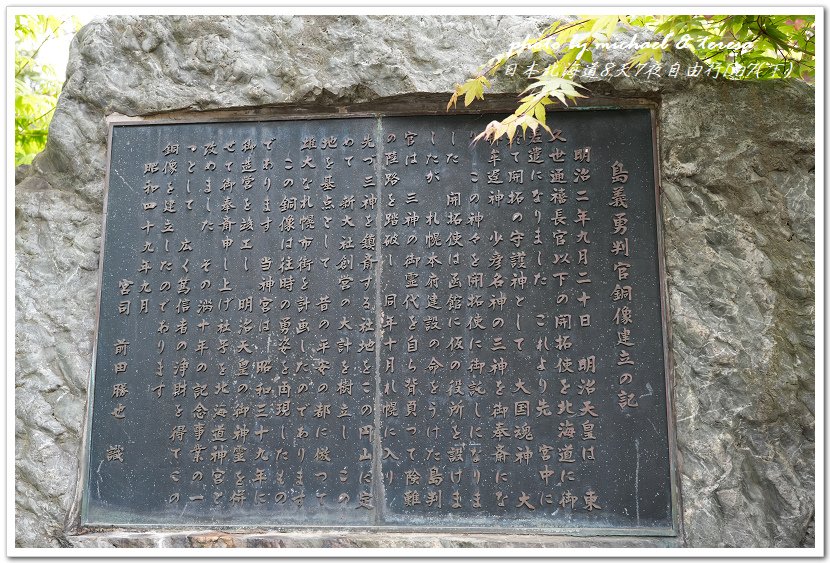 photo by michael & teresa
日本北海道8天7夜自由行
島義勇判官銅像建立の記
明治二年九月二十日　明治天皇は　東
久世通禧長官以下の開拓使を北海道に御
差遣になりました　これより先　宮中に
て開拓の守護神として　大国魂神　大
那牟遅神　少彦名神の三神を御奉斎にな
り　この神々を開拓使に御託しになりま
した　開拓使は函館に仮の役所を設けま
したが　札幌本府建設の命をうけた島判
官は　三神の御霊代を自ら背負つて険難
の陸路を踏破し　同年十月札幌に入り
先づ三神を鎮斎する社地をこの円山に定
めて　新大社創宮の大計を樹立し　この
地を基点として　昔の平安の都に倣つて
雄大な札幌市街を計画したのであります
この銅像は往時の勇姿を再現したもの
であります　当神宮は　昭和三十九年に
御造営を竣工し　明治天皇の御神霊を併
せて御奉斎申し上げ社子を北海道神宮と
改めました　その満十年の記念事業の一
つとして　広く篤信者の浄財を得てこの
銅像を建立したのであります
昭和四十九年九月
宮司　前田勝也　識